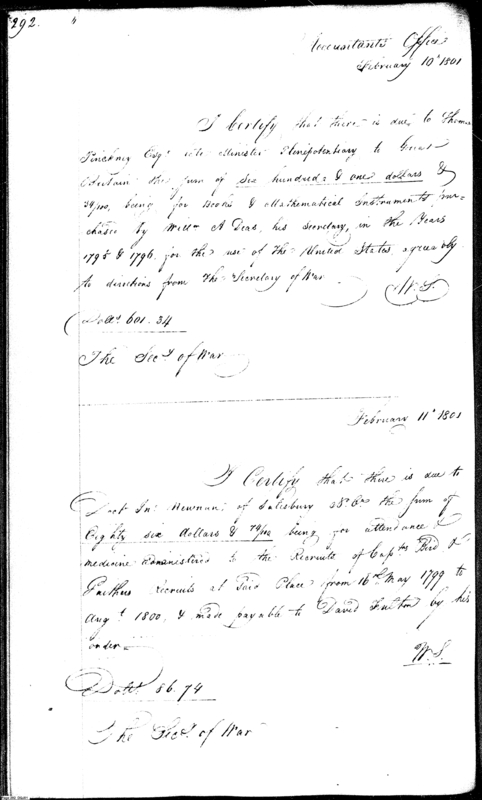 292.
Accountants Office
February 10th 1801
I Certify that there is due to Thomas
Pinckney Esqr late Minister Plenipotentiary to Great
Britain the sum of six hundred & one dollars &
34/100, being for Books & Mathematical Instruments pur-
chased by Willm A Deas, his secretary, in the Years
1795 & 1796, for the use of the United States, agreeably
to directions from The Secretary of War
W. S.
Dolls. 601. 34
The Secy. of War
February 11th 1801
I Certify that there is due to
Doct Jno. Newnan of Salisbury No. Ca. the sum of
Eighty six dollars & 74/100 being for attendance &
medicine administered to the Recruits of Capts. Bird &
Recruits at said Place from 16th May 1799 to
Augt. 1800, & made payable to David Fulton by his
order
W. S.
Dolls. 86. 74
The Secy. of War